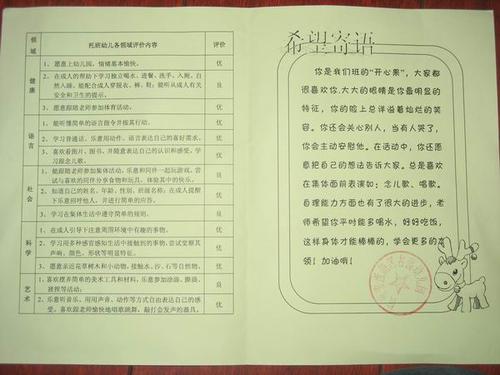 领域
托班幼儿各领域评价内容
评价
健康
1、愿意上幼儿园，情绪基本愉快。
优
2、在成人的帮助下学习独立喝水、进餐、洗手、入厕，自然入睡，能配合成人穿脱衣、裤、鞋；能听从成人有关安全和卫生的提示。
良
3、愿意跟随老师参加体育活动。
优
语言
1、能听懂简单的语言指令并按其行动。
优
2、学习普通话，乐意用动作、语言表达自己的喜好需求。
优
3、喜欢看图片、图书，并随意表达自己的认识和感受，学习跟念儿歌。
优
社会
1、能跟随老师参加集体活动，乐意和同伴一起玩游戏，尝试与喜欢的同伴分享食物和玩具，体验其中的快乐。
优
2、知道自己的姓名、年龄、性别、班级名称；在成人提醒下乐意招呼他人，并进行简单的问答。
优
3、学习在集体生活中遵守简单的规则。
良
科学
1、在成人引导下注意周围环境中有趣的事物。
优
2、学习用多种感官感知生活中接触到的事物，尝试觉察其声响、颜色、形状等明显特征。
优
3、愿意亲近花草树木和小动物，接触水、沙、石等自然物。
优
艺术
1、喜欢摆弄简单的美术工具和材料，乐意参加涂涂、撕撕、搓捏等活动；
良
2、乐意听音乐，用用声音、动作等方式自由表达自己的感受，喜欢跟老师愉快地唱歌跳舞、敲打会发声的器具。
优
希望寄语
你是我们班的“开心果”，大家都
很喜欢你，大大的眼睛是你最明显的
特征，你的脸上总洋溢着灿烂的笑
容。你还会关心别人，当有人哭了，
你会主动安慰他。在活动中，你还愿
意把自己的想法告诉大家。总是喜欢
在集体面前表演如：念儿歌、唱歌。
自理能力方面也有了很大的进步，老
师希望你平时能多喝水，好好吃饭，
这样身体才能棒棒的，学会更多的本
领！加油啊！